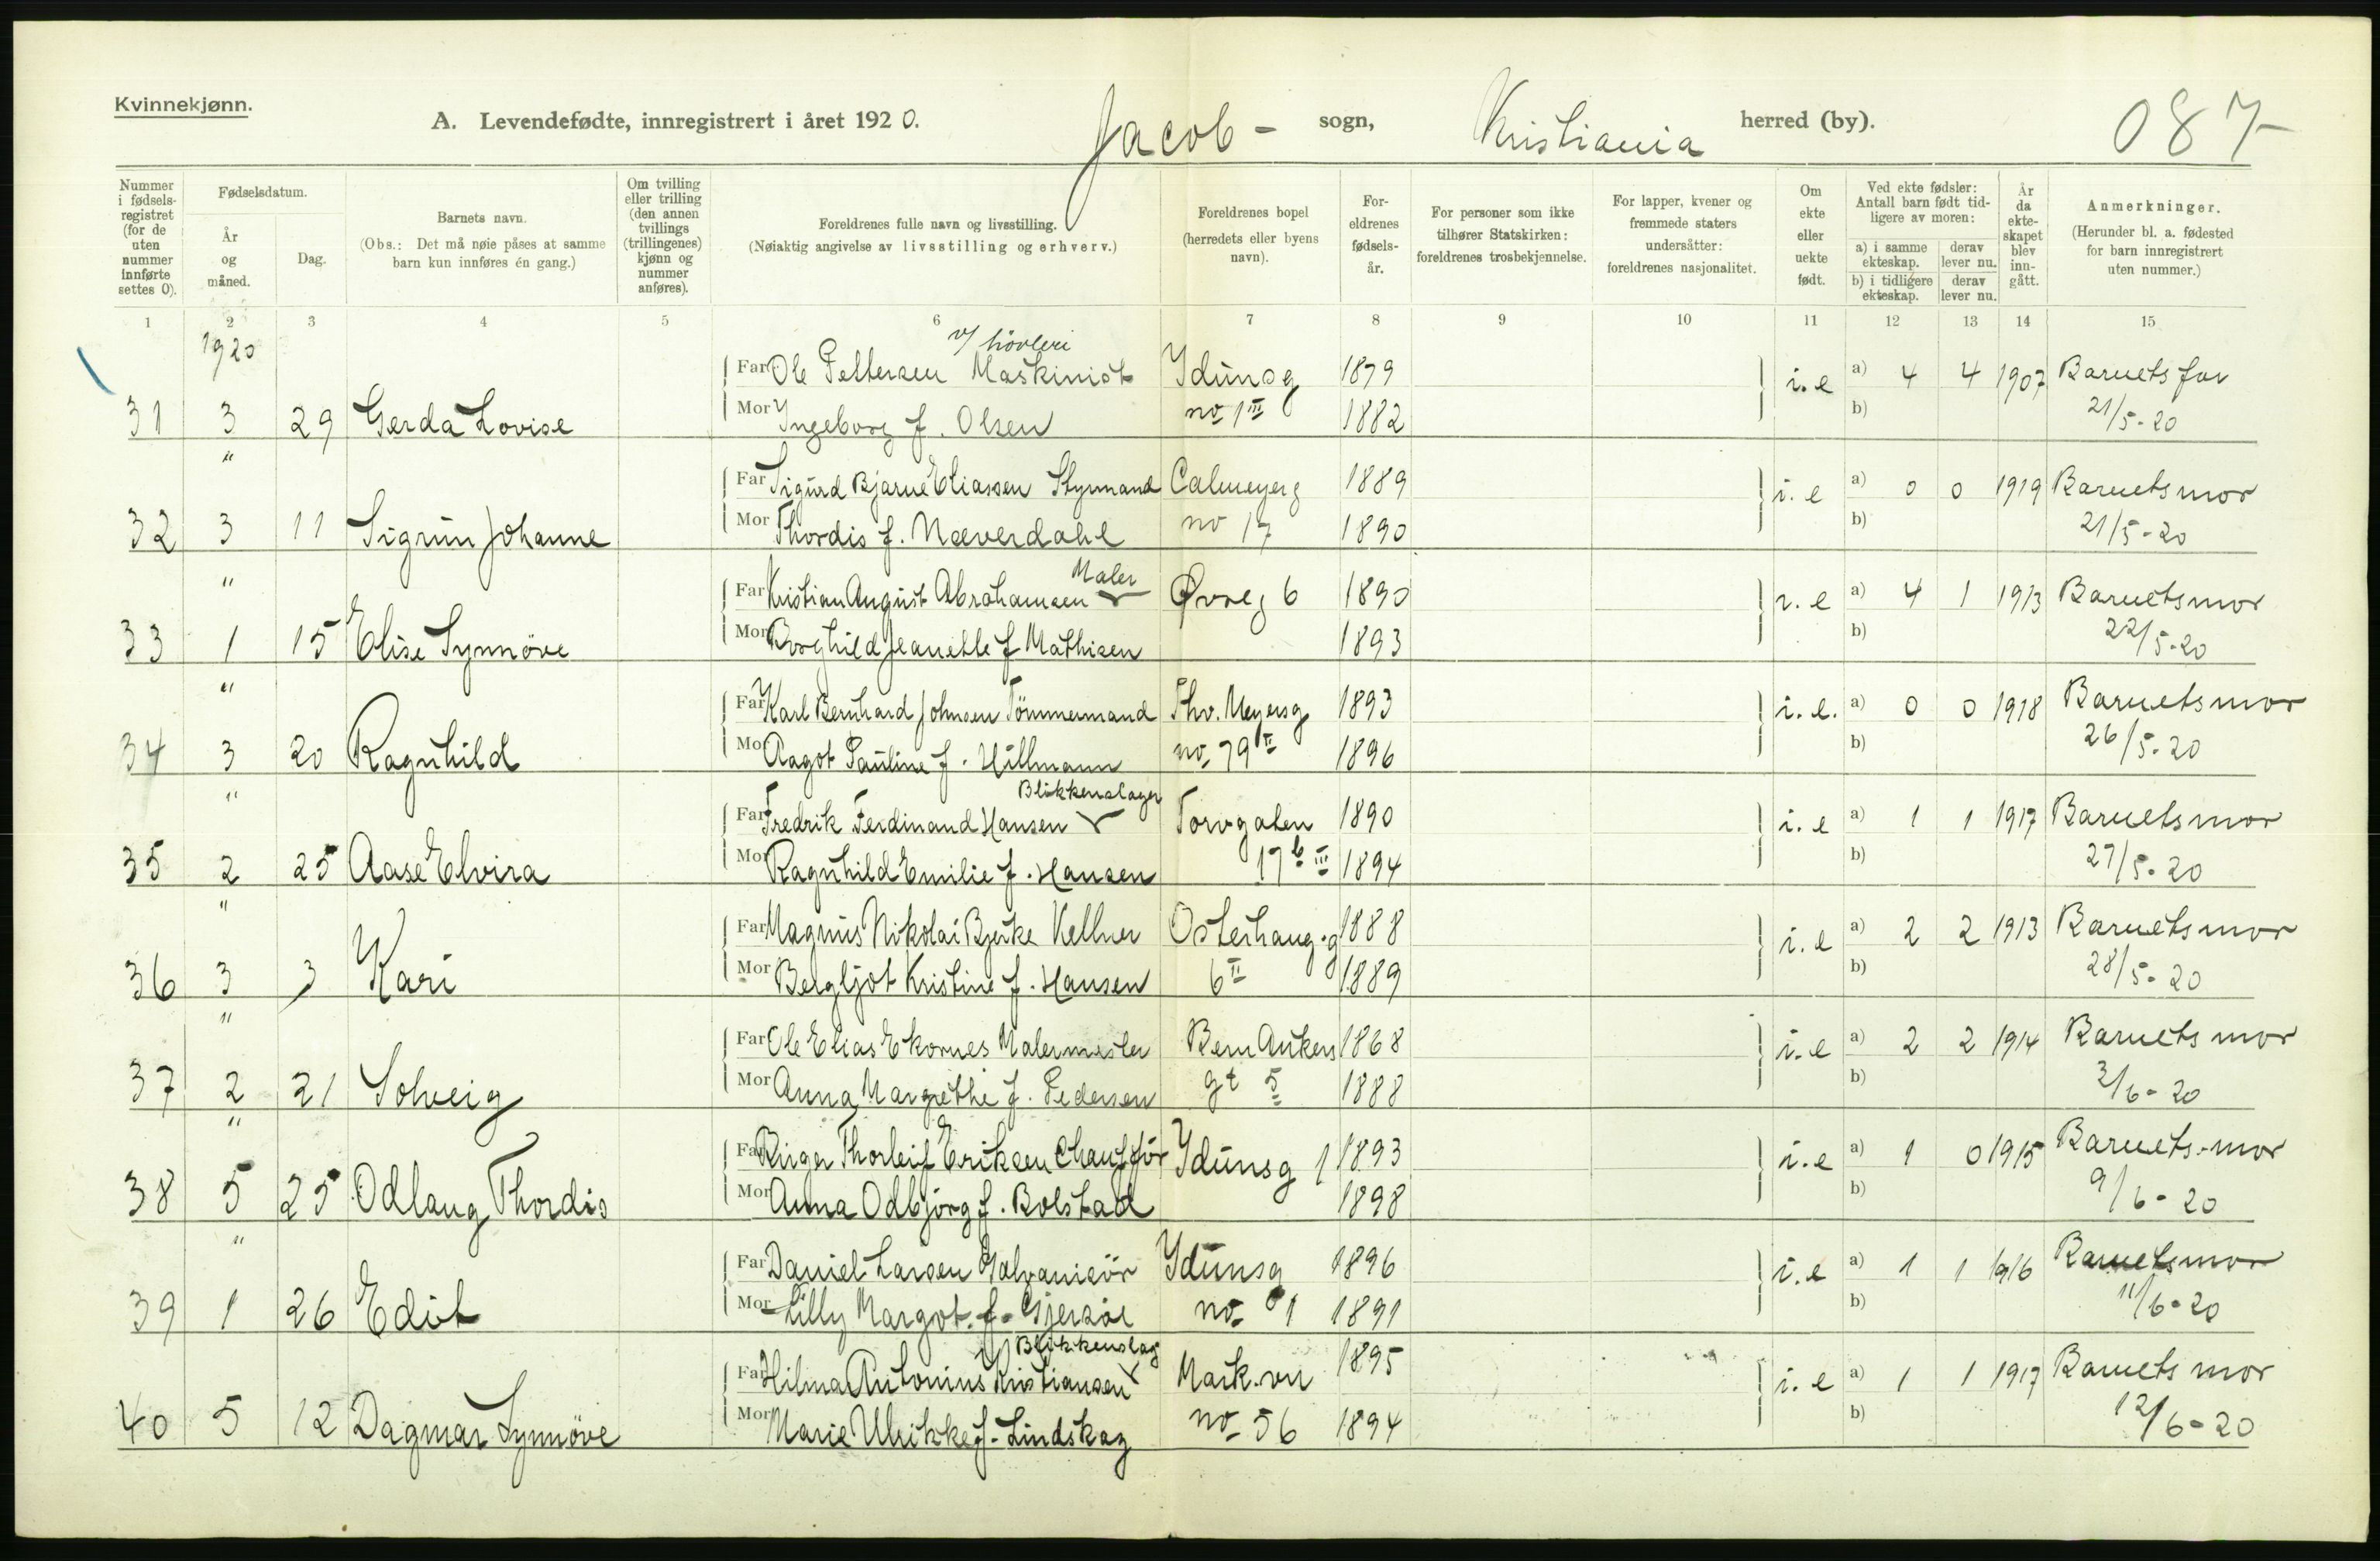 Kvinnekjønn.
A. Levendefødte, innregistrert i året 1920. Jacob - sogn, Kristiania herred (by). 087
Nummer i fødselsregistret (for de uten nummer innførte settes 0).
Fødselsdatum.
År og måned.
Dag.
Barnets navn.
(Obs.: Det må nøie påses at samme barn kun innføres én gang.)
Om tvilling eller trilling (den annen tvillings (trillingenes) kjønn og nummer anføres).
Foreldrenes fulle navn og livsstilling.
(Nøiaktig angivelse av livsstilling og erhverv.)
Foreldrenes bopel (herredets eller byens navn).
Foreldrenes fødselsår.
For personer som ikke tilhører Statskirken: foreldrenes trosbekjennelse.
For lapper, kvener og fremmede staters undersåtter: foreldrenes nasjonalitet.
Om ekte eller uekte født.
Ved ekte fødsler: Antall barn født tidligere av moren:
a) i samme ekteskap. derav lever nu.
b) i tidligere ekteskap. derav lever nu.
År da ekteskapet blev inngått.
Anmerkninger.
(Herunder bl. a. fødested for barn innregistrert uten nummer.)
1 2 3 4 5 6 7 8 9 10 11 12 13 14 15
1920
v/ hövleri
Far Ole Pettersen Maskinist Idunsg 1879 i. e a) 4 4 1907 Barnets far
31 3 29 Gerda Lovise Mor Ingeborg f. Olsen no 1 III 1882 b) 21/5-20
"
Far Sigurd Bjarne Eliassen Styrmand Calmeyerg 1889 i. e a) 0 0 1919 Barnets mor
32 3 11 Sigrun Johanne Mor Thordis f. Næverdahl no 17 1890 b) 21/5-20
"
Maler
Far Kristian August Abrahamsen Øvreg 6 1890 i. e a) 4 1 1913 Barnets mor
33 1 15 Elise Synnöve Mor Borghild Jeanette f Mathisen 1893 b) 22/5-20
"
Far Karl Bernhard Johnsen Tömmermand Thv. Meyersg 1893 i. e. a) 0 0 1918 Barnets mor
34 3 20 Ragnhild Mor Aagot Pauline f. Hillmann no 79 II 1896 b) 26/5-20
"
Blikkenslager
Far Fredrik Ferdinand Hansen Torvgaten 1890 i. e a) 1 1 1917 Barnets mor
35 2 25 Aase Elvira Mor Ragnhild Emilie f. Hansen 17 b III 1894 b) 27/5-20
"
Far Magnus Nikolai Bjerke Kellner Osterhaug.g 1888 i. e a) 2 2 1913 Barnets mor
36 3 3 Kari Mor Bergljot Kristine f. Hansen 6 II 1889 b) 28/5-20
"
Far Ole Elias Ekornes Malermester Bern Ankers 1868 i. e a) 2 2 1914 Barnets mor
37 2 21 Solveig Mor Anna Margrethe f. Pedersen gt 5 1888 b) 2/6-20
"
Far Birger Thorleif Eriksen Chaufför Idunsg 1 1893 i. e a) 1 0 1915 Barnets mor
38 5 25 Odlaug Thordis Mor Anna Odbjörg f. Bolstad 1898 b) 9/6-20
"
Far Daniel Larsen Galvanisör Idunsg 1896 i. e a) 1 1 1916 Barnets mor
39 1 26 Edit Mor Lilly Margot f. Gjersöe no 1 1891 b) 11/6-20
Blikkenslag
Far Hilmar Antonius Kristiansen Mark.vn 1895 i. e a) 1 1 1917 Barnets mor
40 5 12 Dagmar Synnöve Mor Marie Ulrikke f. Lindskog no 56 1894 b) 12/6-20